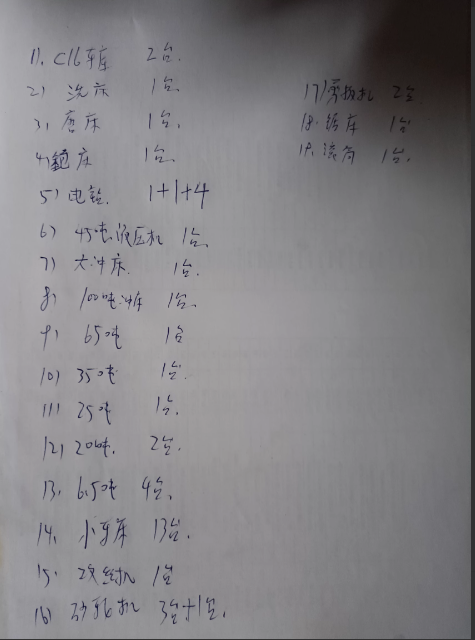 1). C16车床 2台.
2) 洗床 1台.
3. 磨床 1台.
4. 刨床 1台.
5) 电钻. 1+1+4
6) 45吨液压机 1台.
7) 大冲床. 1台.
8) 100吨冲床 1台.
9) 65吨 1台
10) 35吨 1台.
11) 25吨 1台.
12) 20吨. 2台.
13. 6.5吨 4台.
14. 小车床 13台.
15. 攻丝机 1台
16) 砂轮机 3台+1台.
17) 剪板机 2台
18. 锯床 1台
19. 滚筒 1台.